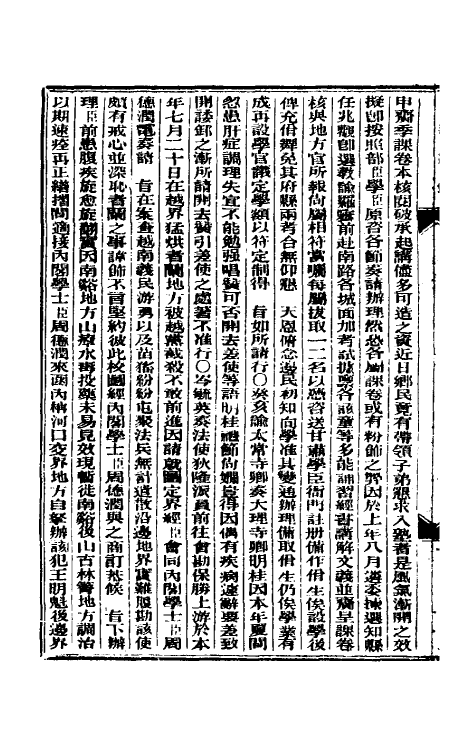 申齋季課卷本核閱破承起講儘多可造之資近日鄉民竟有帶領子弟懇求入塾者是風氣漸開之效
擬卽按照部臣學臣原咨各節奏請辦理然恐各屬課卷或有粉飾之弊因於上年八月遴委揀選知縣
任兆觀卽選教諭羅 前赴南路各城面加考試據 各該童等多能誦習經書講解文義並齎呈課卷
核與地方官所報尚屬相符當囑每屬拔取一二名以憑咨送甘肅學臣衙門註冊備作佾生俟設學後
俾充佾舞免其府縣兩考合無仰懇　天恩俯念邊民初知向學准其變通辦理備取佾生仍俟學業有
成再設學官議定學額以符定制得　旨如所請行○癸亥諭太常寺卿奏大理寺卿明桂因本年夏間
忽患肝症調理失宜不能勉强唱贊可否開去差使等語明桂禮節尚嫺豈得因偶有疾病遽辭要差致
開諉卸之漸所請開去贊引差使之處著不准行○岑毓英奏法使狄隆派員前往會勘保勝上游於本
年七月二十日在越界猛烘者蘭地方被越黨截殺不敢前進因請就圖定界經臣會同內閣學士臣周
德潤電奏請　旨在案查越南義民游勇以及苗猺紛紛屯聚法兵無計遣散沿邊地界實難履勘該使
頗有戒心並深恥者蘭之事諱飾不言堅約彼此校圖經內閣學士臣周德潤與之商訂恭候　旨下辦
理臣前患腹疾旋愈旋 實因南谿地方山瘴水毒投藥未易見效現暫徙南谿後山古林箐地方調治
以期速痊再正繕摺間適接內閣學士臣周德潤來函內稱河口交界地方自拏辦該犯王明魁後邊界